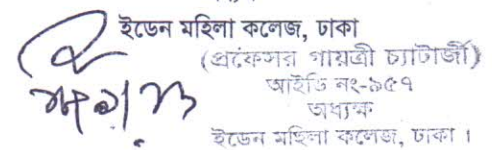 ইডেন মহিলা কলেজ, ঢাকা
(প্রফেসর গায়ত্রী চ্যাটার্জী)
আইডি নং-৯৫৭
অধ্যক্ষ
ইডেন মহিলা কলেজ, ঢাকা ।